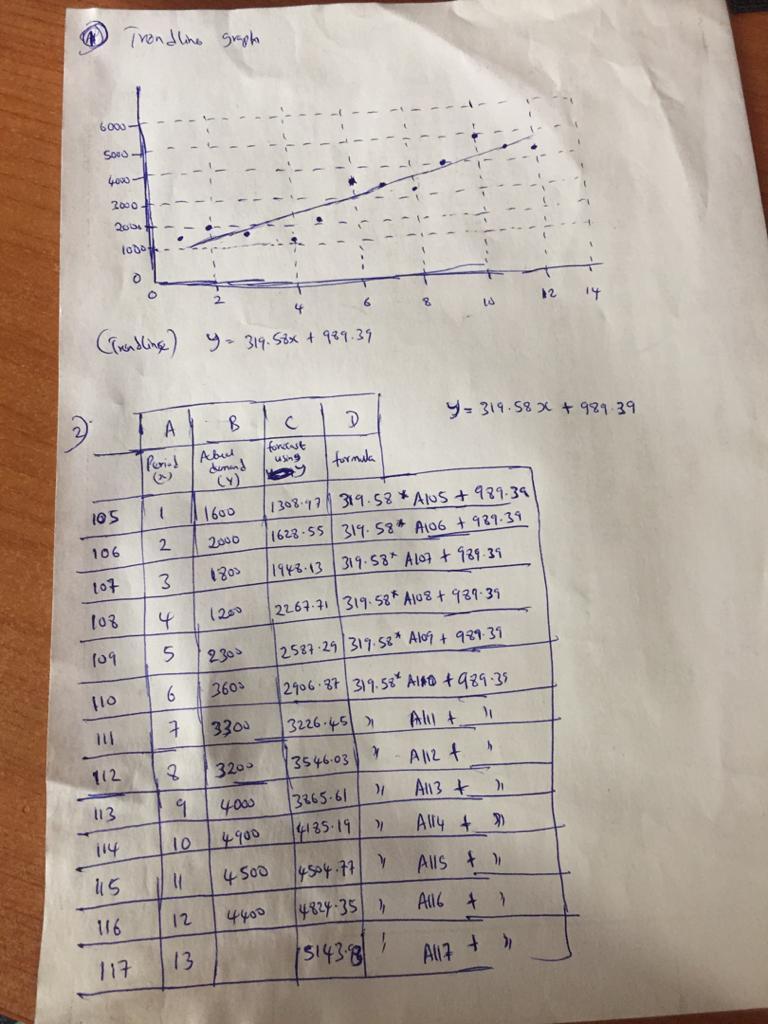 A Trendline graph
6000
5000
4000
3000
2000
1000
0
0 2 4 6 8 10 12 14
(Trendline) y = 319.58x + 989.39
2) y = 319.58x + 989.39
A B C D
Period (x) Actual demand (Y) forecast using y formula
105 1 1600 1308.97 319.58* A105 + 989.39
106 2 2000 1628.55 319.58* A106 + 989.39
107 3 1800 1948.13 319.58* A107 + 989.39
108 4 1200 2267.71 319.58* A108 + 989.39
109 5 2300 2587.29 319.58* A109 + 989.39
110 6 3600 2906.87 319.58* A110 + 989.39
111 7 3300 3226.45 " A111 + "
112 8 3200 3546.03 " A112 + "
113 9 4000 3865.61 " A113 + "
114 10 4900 4185.19 " A114 + "
115 11 4500 4504.77 " A115 + "
116 12 4400 4824.35 " A116 + "
117 13 5143.93 " A117 + "